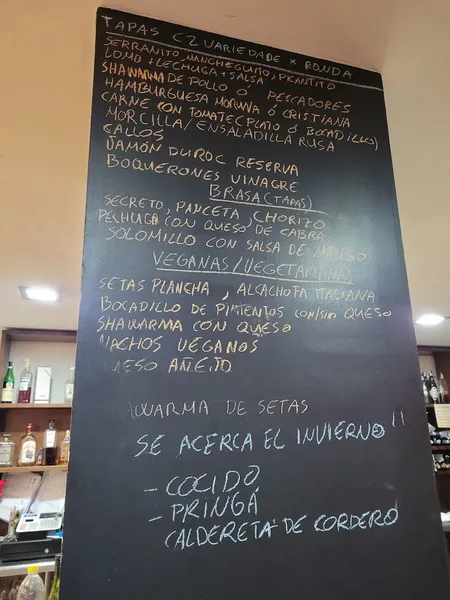 TAPAS C2 VARIEDADE × RONDA
SERRANITO, MANCHEGUITO, PICANTITO
LOMO + LECHUGA + SALSA
SHAWARMA DE POLLO Ó PESCADORES
HAMBURGUESA MORUNA Ó CRISTIANA
CARNE CON TOMATE (PLATO Ó BOCADILLO)
MORCILLA / ENSALADILLA RUSA
CALLOS
JAMÓN DUROC RESERVA
BOQUERONES VINAGRE
BRASA (TAPAS)
SECRETO, PANCETA, CHORIZO
PECHUGA CON QUESO DE CABRA
SOLOMILLO CON SALSA DE
VEGANAS / VEGETARIANAS
SETAS PLANCHA, ALCACHOFA ITALIANA
BOCADILLO DE PIMIENTOS CON/SIN QUESO
SHAWARMA CON QUESO
NACHOS VEGANOS
QUESO AÑEJO
AWARMA DE SETAS
SE ACERCA EL INVIERNO !!
- COCIDO
- PRINGA
CALDERETA DE CORDERO